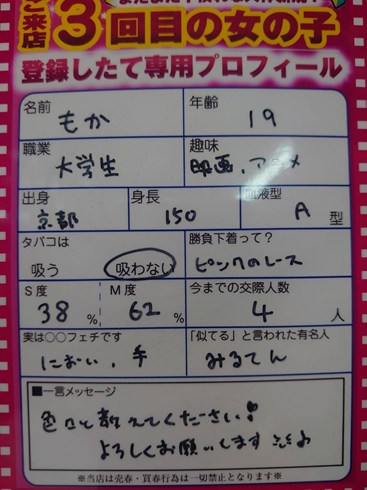 ご来店
3回目の女の子
登録したて専用プロフィール
名前 もか
年齢 19
職業 大学生
趣味 映画、アニメ
出身 京都
身長 150
血液型 A 型
タバコは
吸う 吸わない
勝負下着って?
ピンクのレース
S度 38 %
M度 62 %
今までの交際人数
4 人
実は○○フェチです
におい、手
「似てる」と言われた有名人
みるてん
■一言メッセージ
色々と教えてください!
よろしくお願いします
※当店は売春・買春行為は一切禁止となります※